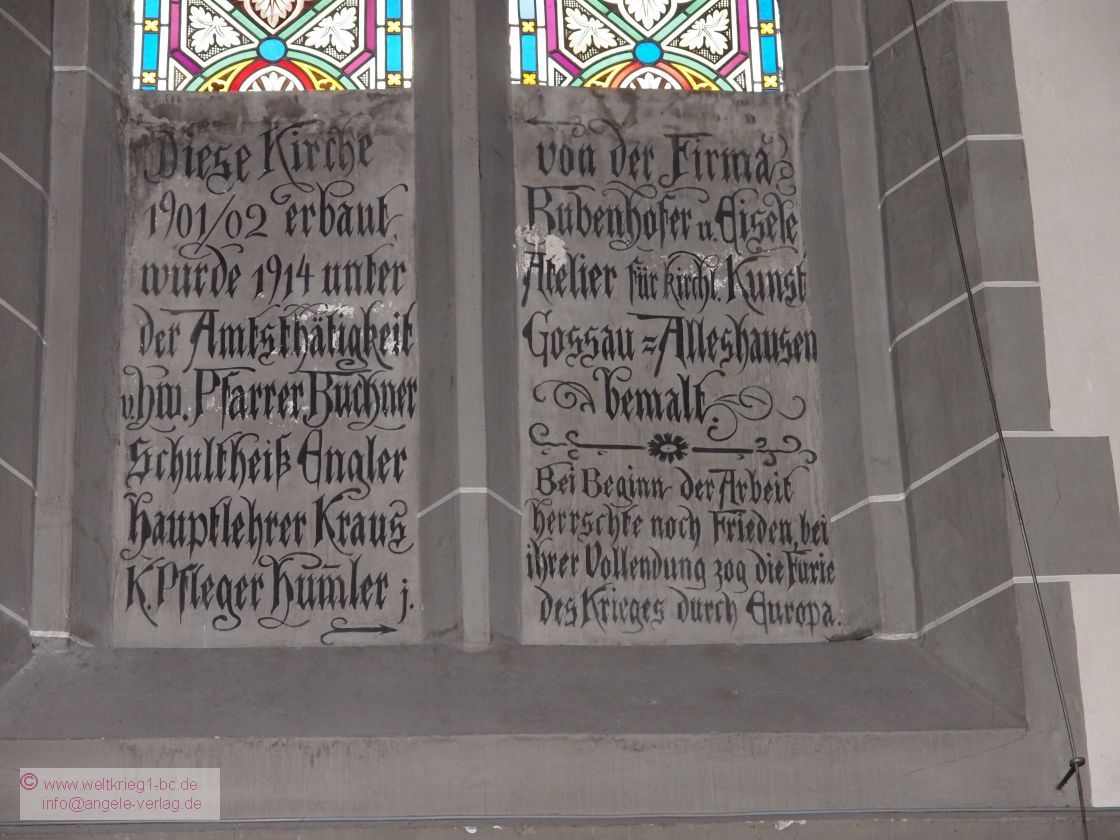 Diese Kirche
1901/02 erbaut,
wurde 1914 unter
der Amtsthätigkeit
v. hw. Pfarrer Buchner
Schultheiß Engler
Hauptlehrer Kraus
K. Pfleger Hum̄ler j.
von der Firma
Bubenhofer u. Eisele
Atelier für kirchl. Kunst
Gossau = Alleshausen
bemalt.
Bei Beginn der Arbeit
herrschte noch Frieden, bei
ihrer Vollendung zog die Furie
des Krieges durch Europa.
© www.weltkrieg1-bc.de
info@angele-verlag.de